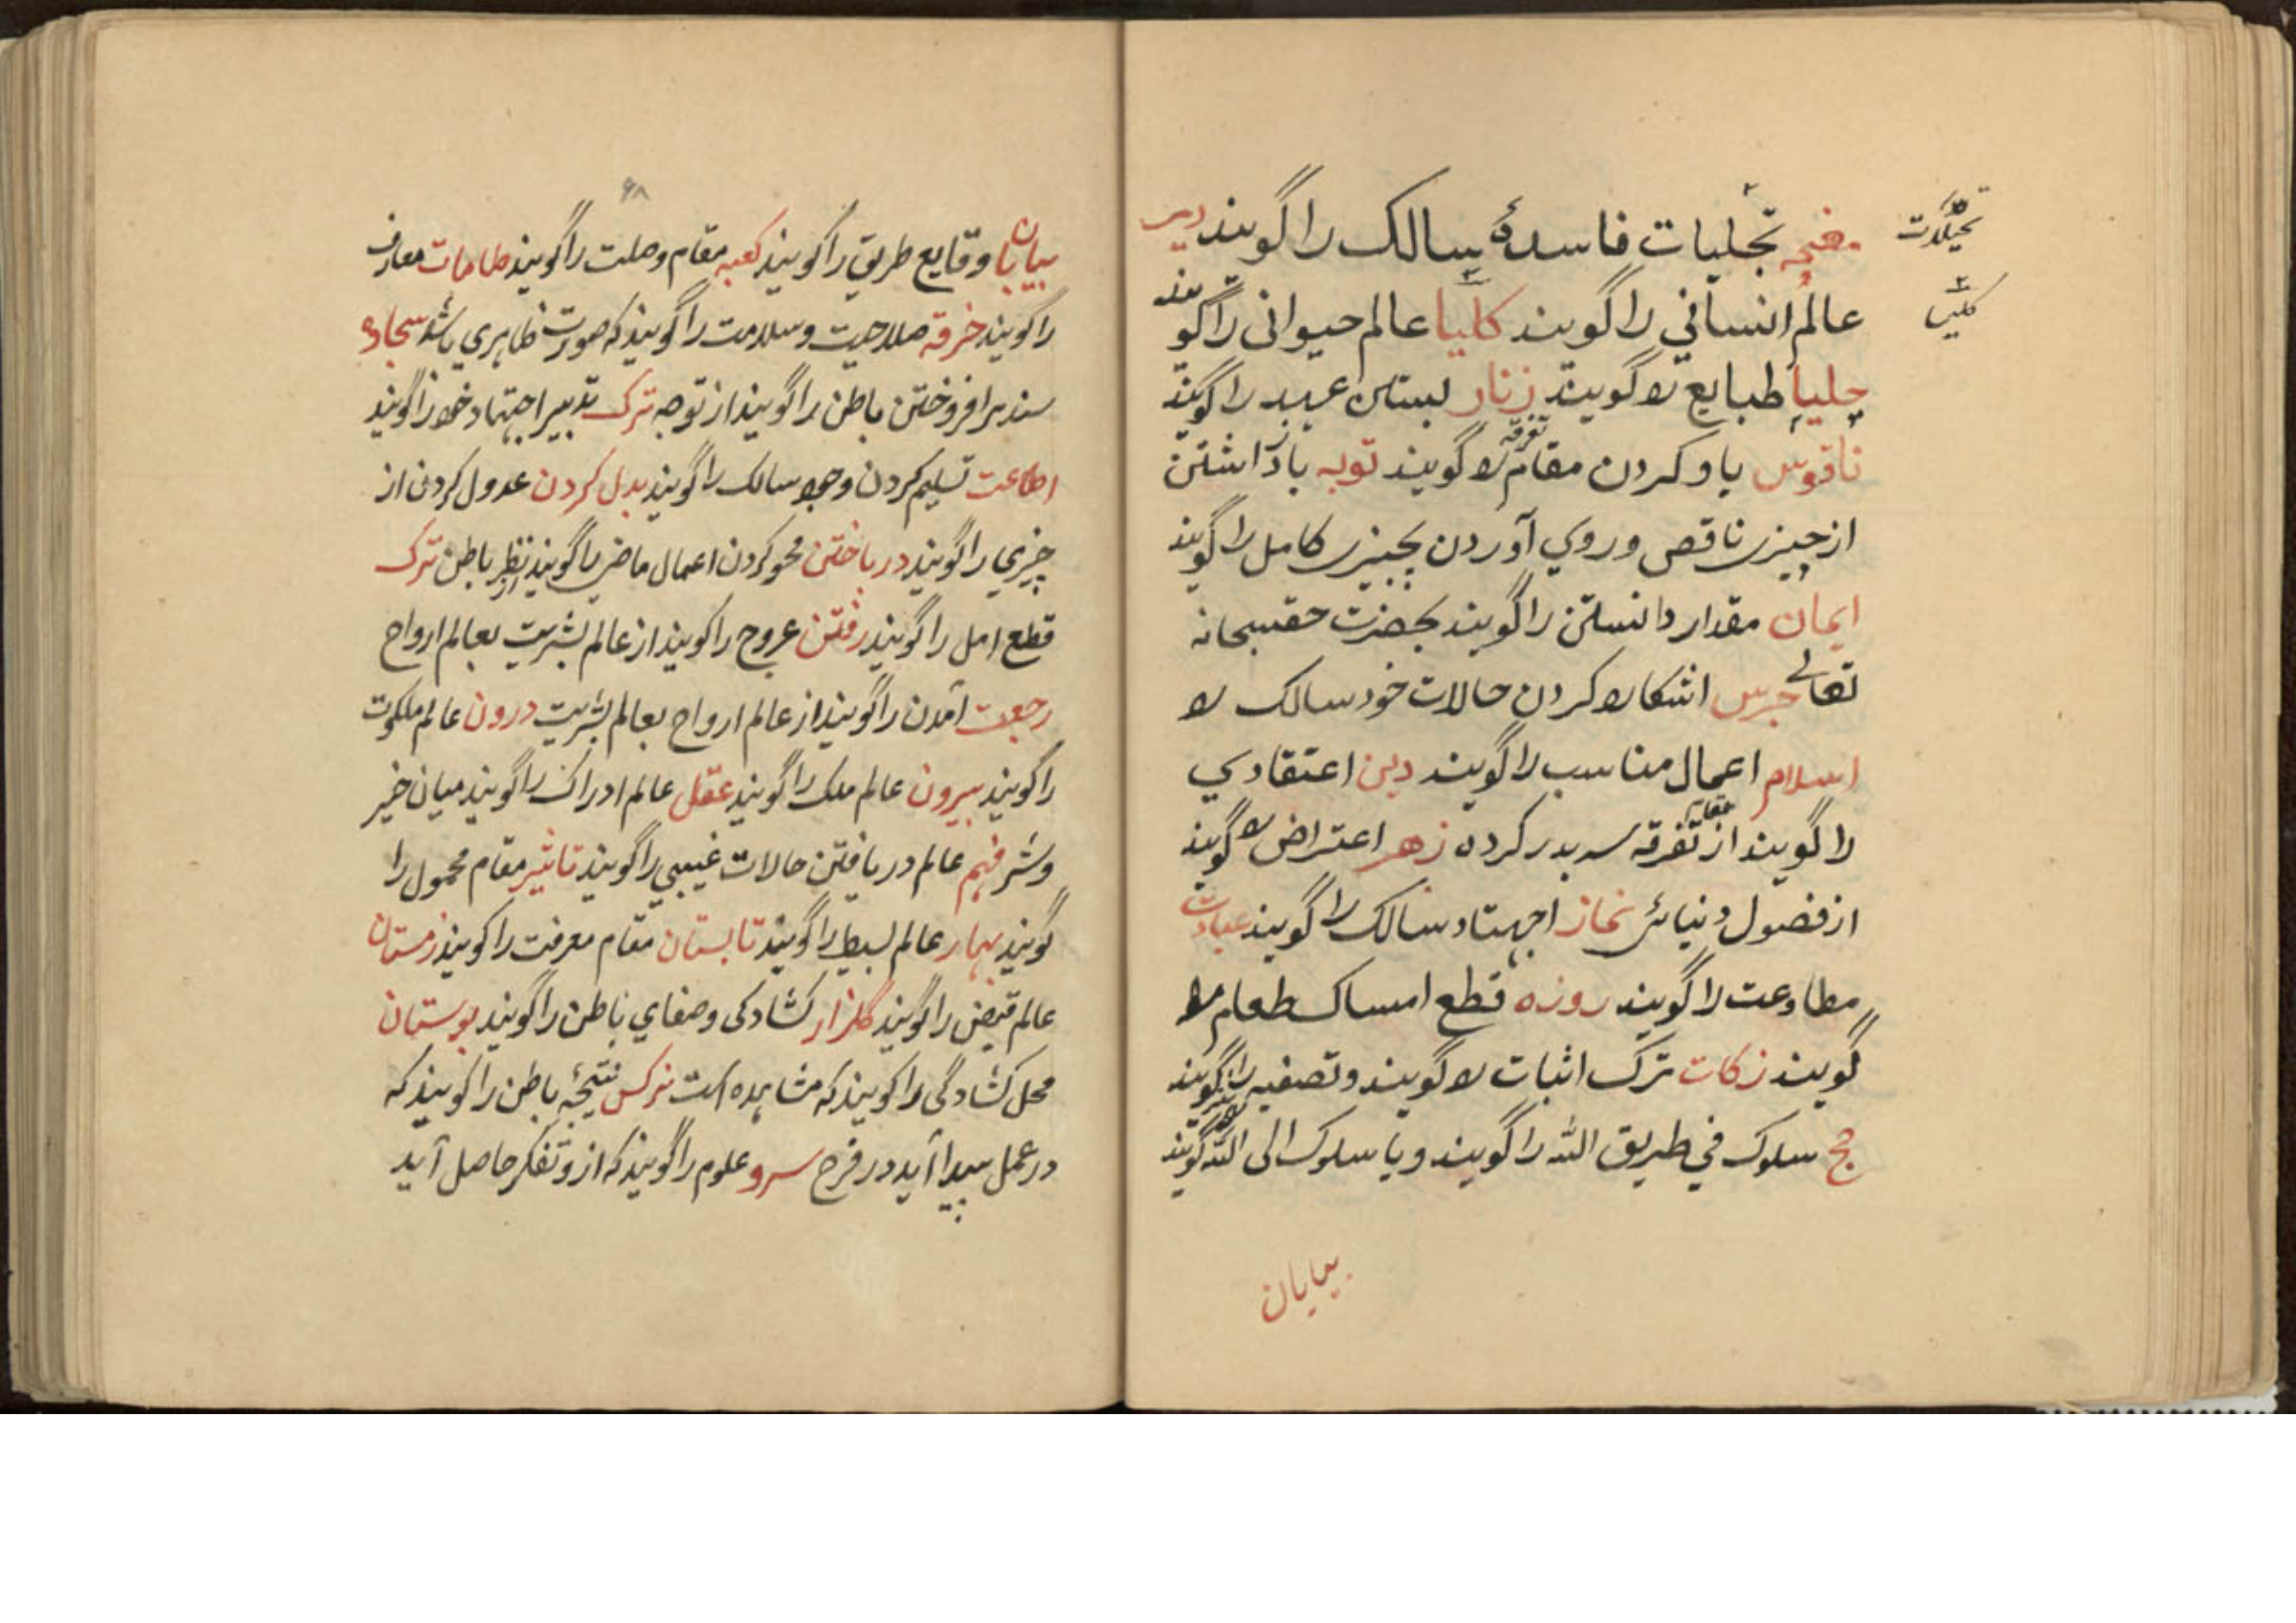 مغبچه تجلیات فاسدهٔ سالک را گویند دیر
عالم انسانی را گویند کلیا عالم حیوانی را گویند
چلیپا طبایع را گویند زنار بستن عهد را گویند
ناقوس یاد کردن مقام تفرقه را گویند توبه باز داشتن
از چیزی ناقص و روی آوردن بچیزی کامل را گویند
ایمان مقدار دانستن را گویند بحضرت حق سبحانه
تعالی جرس اشکارا کردن حالات خود سالک را
اسلام اعمال مناسب را گویند دین اعتقادی
را گویند از مقام تفرقه سر بدر کرده زهد اعتراض را گویند
از فضول دنیائی نماز اجهتاد سالک را گویند عبادت
مطاوعت را گویند روزه قطع امساک طعام را
گویند زکات ترک اثبات را گویند و تصفیه را نیز گویند
حج سلوک فی طریق الله را گویند و یا سلوک الی الله گویند
بیابان
تجلیات
کلیسا
۶۸
بیابان وقایع طریق را گویند کعبه مقام وصلت را گویند طامات معارف
را گویند خرقه صلاحیت و سلامت را گویند که صورت ظاهری باشد سجاده
سند برافروختن باطن را گویند از توجه ترک تدبیر اجتهاد خود را گویند
اطاعت تسلیم کردن وجود سالک را گویند بدل کردن عدول کردن از
چیزی را گویند درباختن محو کردن اعمال ماضی را گویند از نظر باطن ترک
قطع امل را گویند رفتن عروج را گویند از عالم بشریت بعالم ارواح
رجعت آمدن را گویند از عالم ارواح بعالم بشریت درون عالم ملکوت
را گویند بیرون عالم ملک را گویند عقل عالم ادراک را گویند میان خیر
و شر فهم عالم دریافتن حالات غیبی را گویند تاثیر مقام محمول را
گویند بهار عالم بسیط را گویند تابستان مقام معرفت را گویند زمستان
عالم قبض را گویند گلزار کشادکی و صفای باطن را گویند بوستان
محل کشادگی را گویند که مشاهده است نرکس نتیجهٔ باطن را گویند که
در عمل پیدا آید در فرح سرو علوم را گویند که از و تفکر حاصل آید